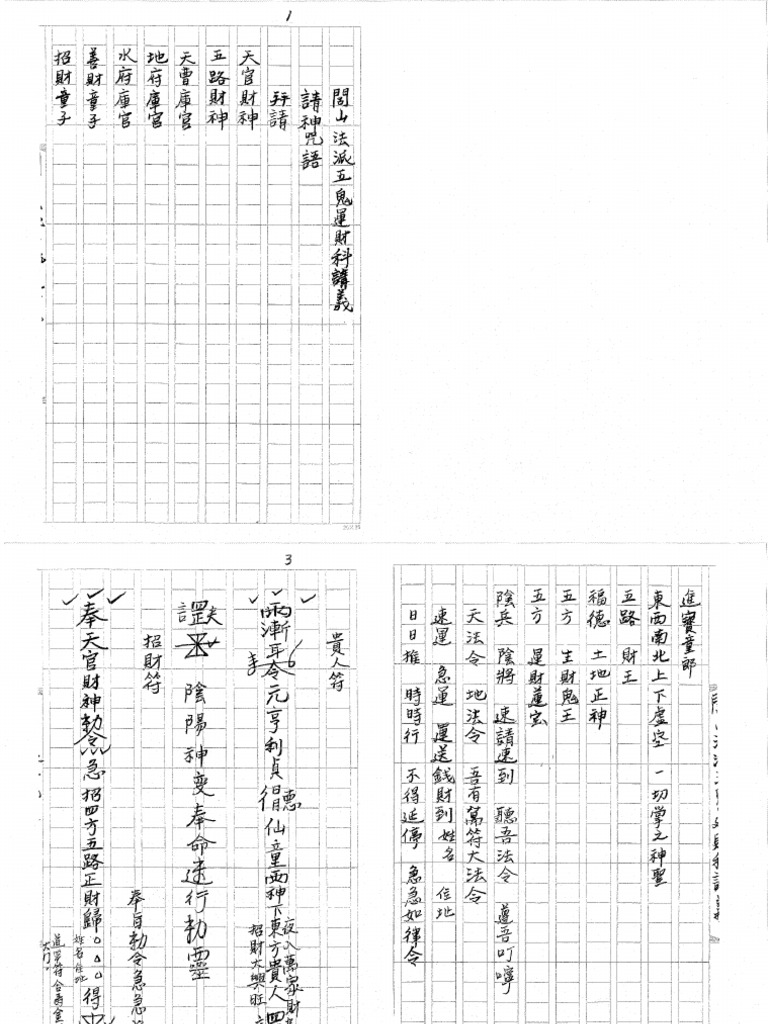 1
閭山法派五鬼運財科講義
請神咒語
拜請
天官財神
五路財神
天曹庫官
地府庫官
水府庫官
善財童子
招財童子
進寶童郎
東西南北上下虛空 一切掌之神聖
五路 財王
福德 土地正神
五方 生財鬼王
五方 運財蓮宮
陰兵 陰將 速請速到 聽吾法令 遵吾叮嚀
天法令 地法令 吾有萬符大法令
速運 急運 運送錢財到 姓名 住地
日日推 時時行 不得延停 急急如律令
3
貴人符
元亨利貞 仙童兩神下東方貴人四
夜入萬家財
招財大興旺
陰陽神變奉命速行勅靈
奉旨勅令急急
招財符
奉天官財神勅令急招四方五路正財歸 得
姓名住址